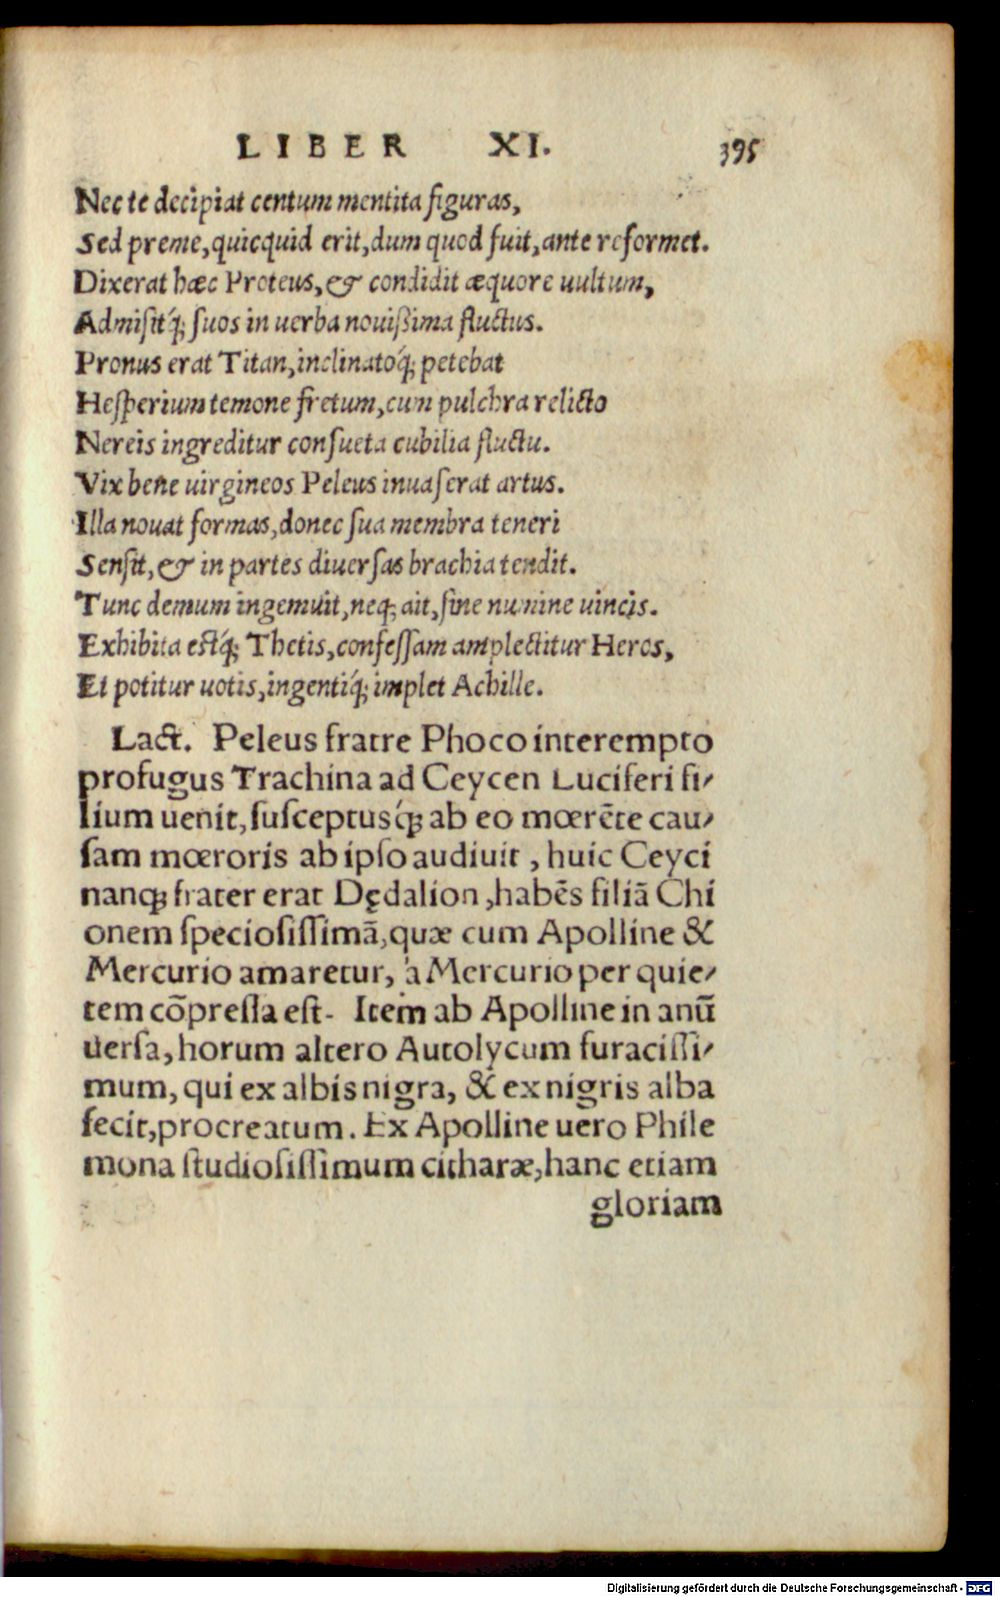 LIBER XI. 395
Nec te decipiat centum mentita figuras,
Sed preme, quicquid erit, dum quod fuit, ante reformet.
Dixerat hæc Proteus, & condidit æquore uultum,
Admisitq́; suos in uerba nouißima fluctus.
Pronus erat Titan, inclinatoq́; petebat
Hesperium temone fretum, cum pulchra relicto
Nereis ingreditur consueta cubilia fluctu.
Vix bene uirgineos Peleus inuaserat artus.
Illa nouat formas, donec sua membra teneri
Sensit, & in partes diuersas brachia tendit.
Tunc demum ingemuit, neq; ait, sine numine uincis.
Exhibita estq́; Thetis, confessam amplectitur Heros,
Et potitur uotis, ingentiq́; implet Achille.
Lact. Peleus fratre Phoco interempto
profugus Trachina ad Ceycen Luciferi fi-
lium uenit, susceptusq́; ab eo mœrēte cau-
sam mœroris ab ipso audiuit, huic Ceyci
nanq; frater erat Dędalion, habēs filiā Chi
onem speciosissimā, quæ cum Apolline &
Mercurio amaretur, à Mercurio per quie-
tem cōpressa est. Item ab Apolline in anū
uersa, horum altero Autolycum furacissi-
mum, qui ex albis nigra, & ex nigris alba
fecit, procreatum. Ex Apolline uero Phile
mona studiosissimum citharæ, hanc etiam
gloriam
Digitalisierung gefördert durch die Deutsche Forschungsgemeinschaft - DFG